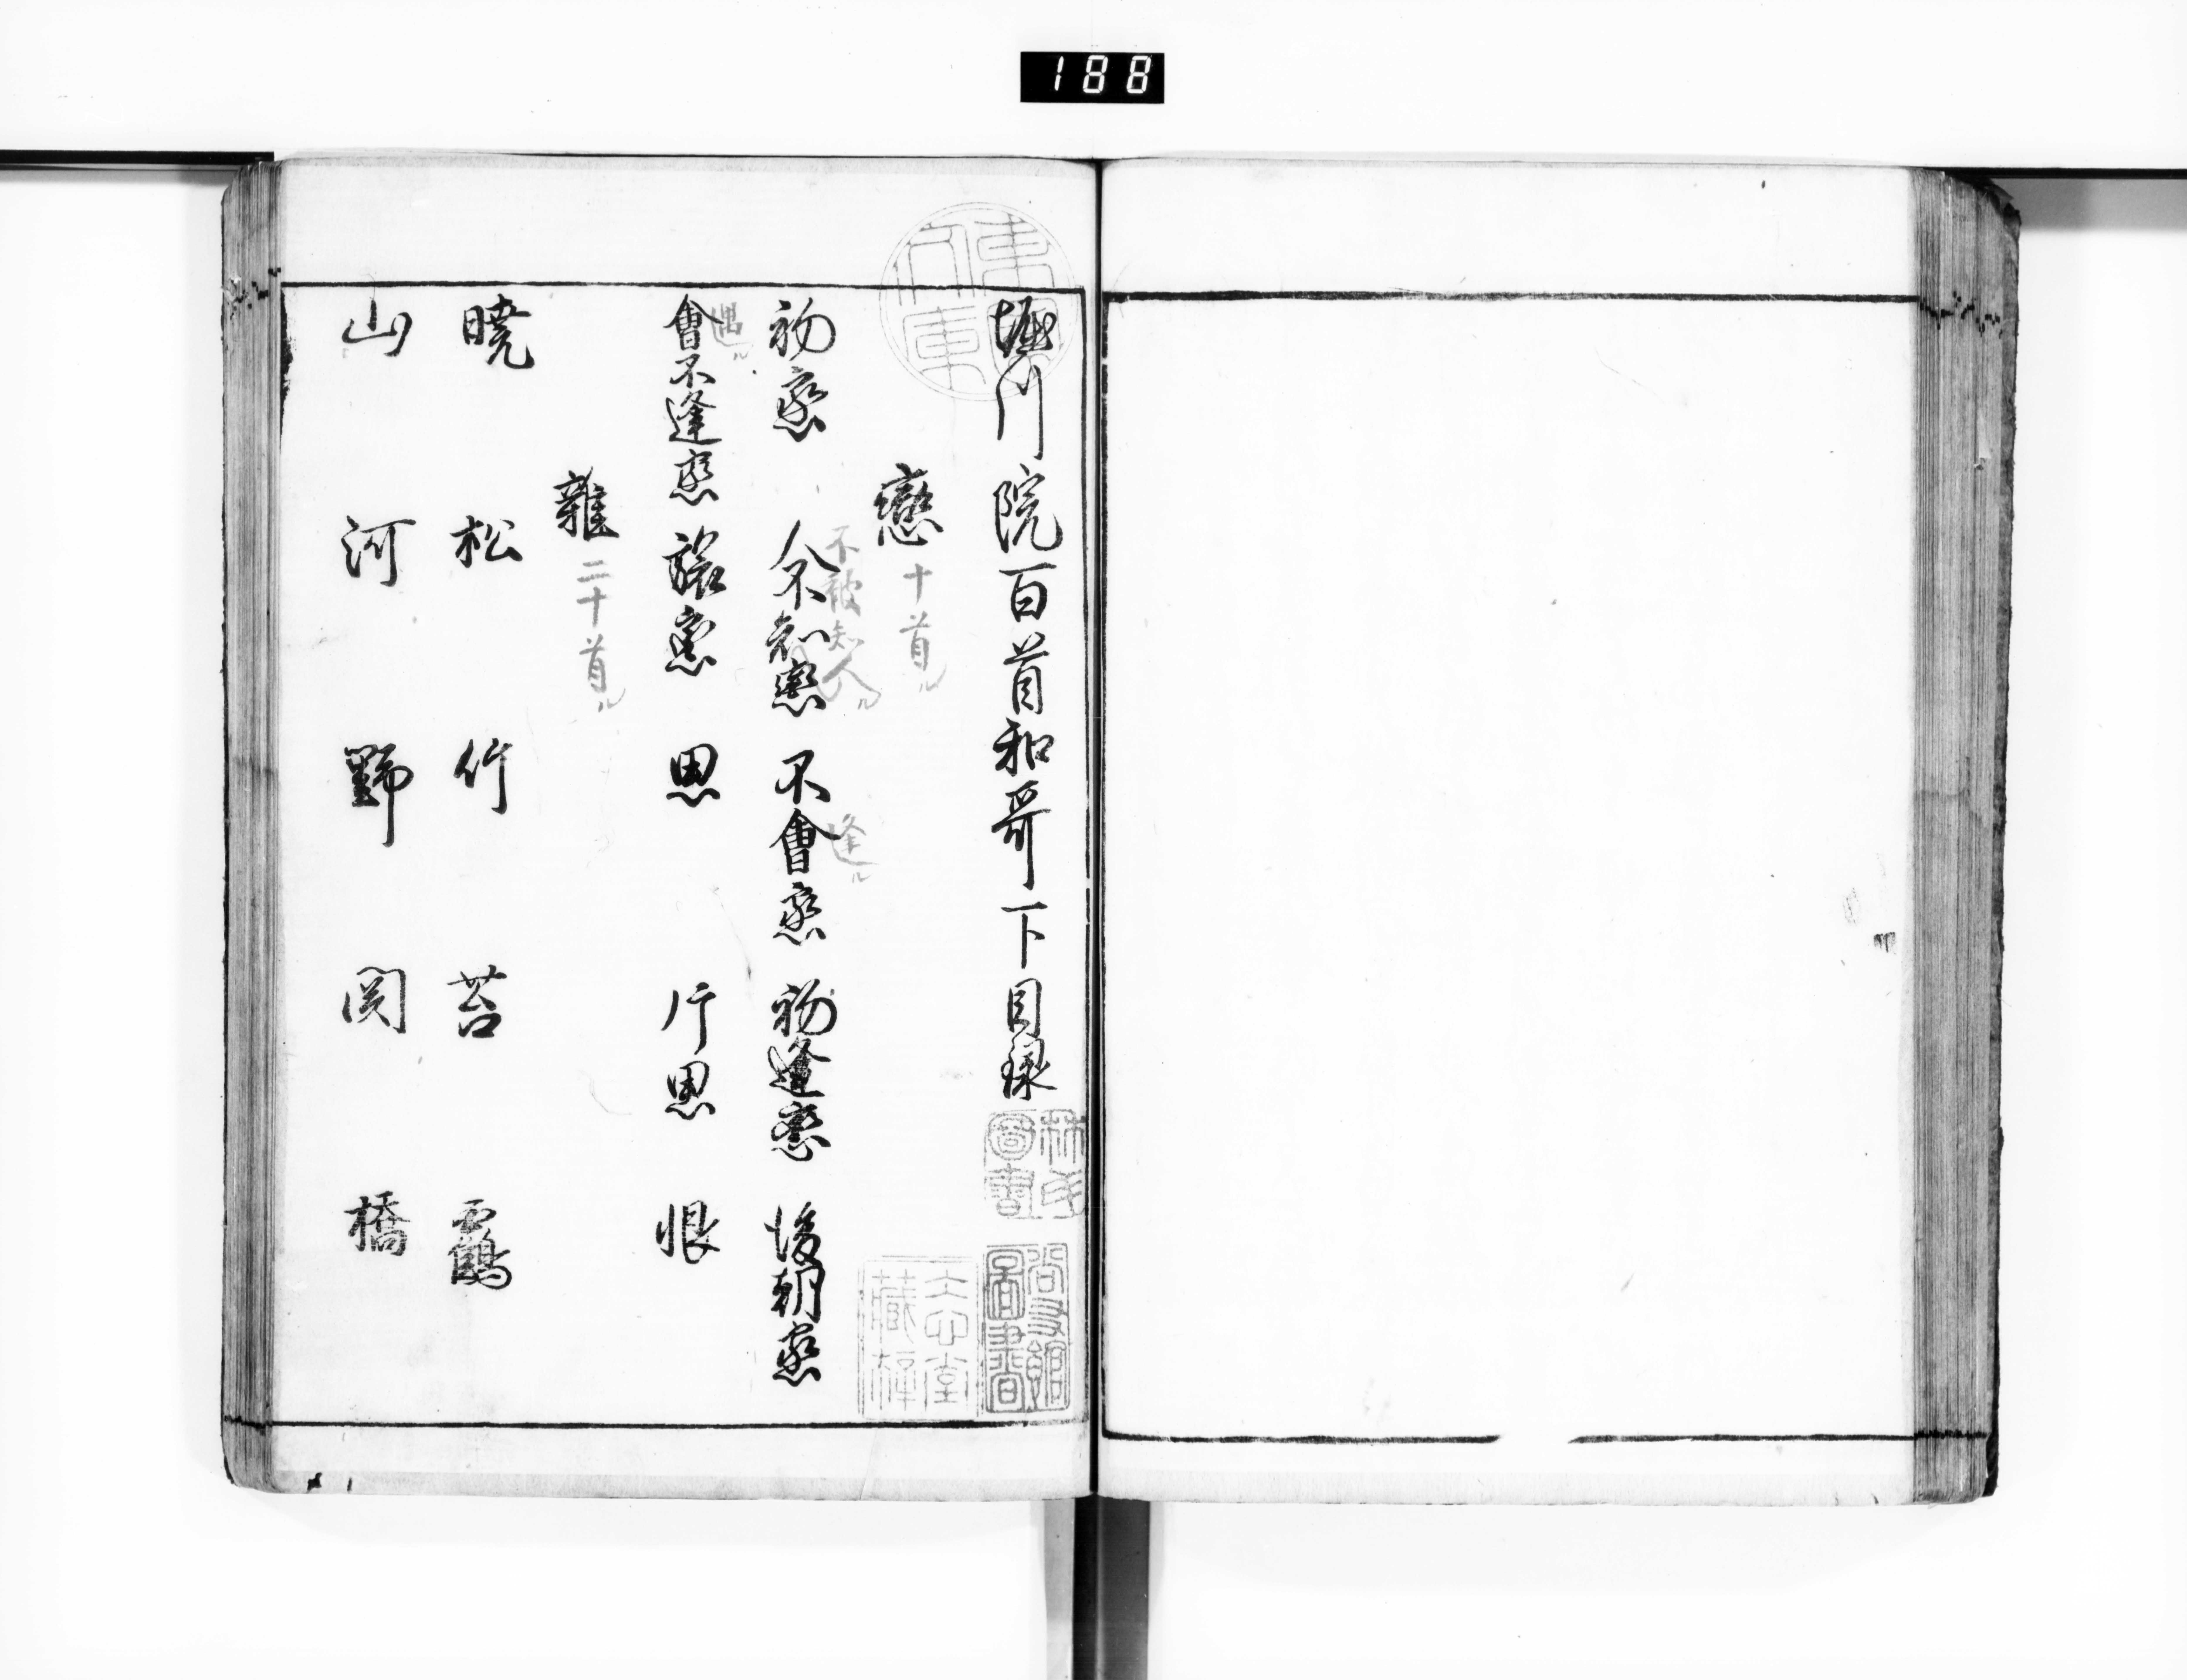 188
堀川院百首和哥下目録
戀 十首
初戀 人不知戀 不會戀 初逢戀 後朝戀
不被知人
逢
會不逢戀 旅戀 思 片思 恨
遇
雜 二十首
曉 松 竹 苔 鶴
山 河 野 関 橋
林氏
圖書